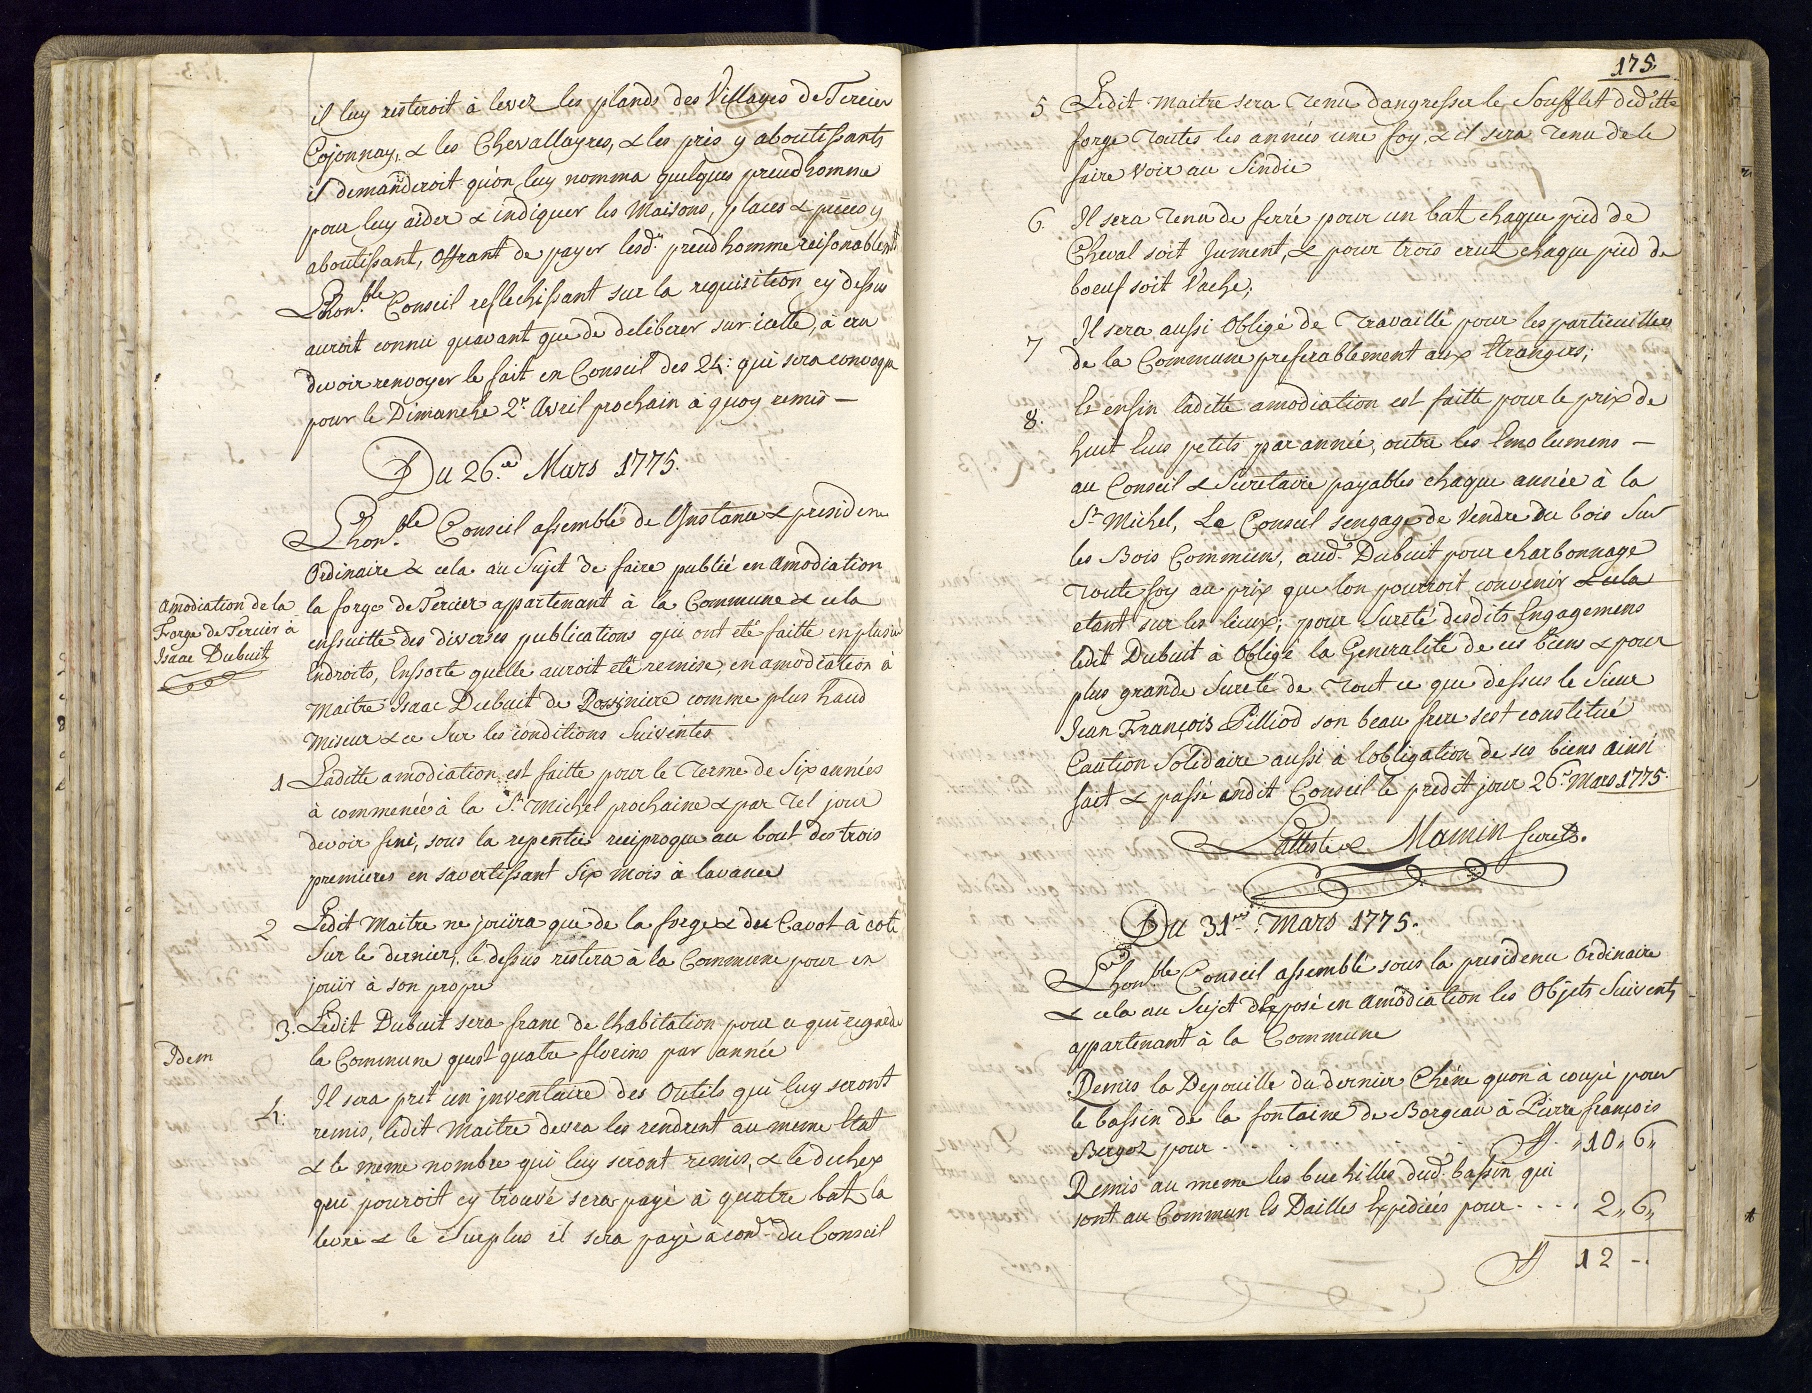 il luy resteroit à lever les plands des Villages de Tercier
Cojonnay, & les Chevallayres, & les prés y aboutissants
il demanderoit qu'on luy nomma quelques preud homme
pour luy aider & indiquer les Maisons, places & pièces y
aboutissant, Offrant de payer lesd.ts preud homme raisonablemt
Lhon.ble Conseil reflechissant sur la requisition cy dessus
auroit connu quavant que de deliberer sur icelle, à cru
devoir renvoyer le fait en Conseil des 24: qui sera convoqué
pour le Dimanche 2.e Avril prochain à quoy remis —
Du 26.e Mars 1775.
Lhon.ble Conseil assemblé de Instance & presidence
Ordinaire & cela au Sujet de faire publié en Amodiation
Amodiation de la
Forge de Tercier à
Isaac Dubuit
la forge de Tercier appartenant à la Commune & cela
ensuitte des diverses publications qui ont été faitte en plusieurs
Endroits, Ensorte quelle auroit été remise en amodiation à
Maitre Isaac Dubuit de Rossiniere comme plus haud
Miseur & ce Sur les conditions Suiventes
1 Laditte amodiation est faitte pour le Terme de Six années
à commencé à la St Michel prochaine & par Tel jour
devoir fini, sous la repentie reciproque au bout des trois
premieres en savertissant Six mois à lavance
2 Ledit Maitre ne jouira que de la forge & du Cavot à coté
Sur le dernier, le dessus restera à la Commune pour en
jouir à son propre
3. Ledit Dubuit sera franc de lhabitation pour ce qui regarde
Idem
la Commune quest quatre florins par année
4. Il sera prit un jnventaire des Outils qui luy seront
remis, ledit Maitre devra les rendrent au meme Etat
& le meme nombre qui luy seront remis, & le dechex
qui pouroit cy trouvé sera payé à quatre bat la
livre & le Surplus il sera payé à cond.on du Conseil
175.
5 Ledit Maitre sera Tenu dangresser le Soufflet deditte
forge Toutes les années une foy, & il sera Tenu de le
faire voir au Sindic
6. Il sera Tenu de ferré pour un bat chaque pied de
Cheval soit Jument, & pour trois crut chaque pied de
boeuf soit Vache;
7 Il sera aussi Obligé de Travaillé pour les particulliers
de la Commune preferablement aux Etrangers;
8. Et enfin laditte amodiation est faitte pour le prix de
huit Ecus petits par année, outre les Emolumens —
au Conseil & Secretaire payables chaque année à la
St Michel, Le Conseil sengage de Vendre du bois Sur
les Bois Communs, aud.t Dubuit pour charbonnage
Toute foy au prix que lon pourroit convenir & cela
etant sur les lieux; pour Sureté desdits Engagemens
ledit Dubuit à Obligé la Generalité de ces biens & pour
plus grande Sureté de Tout ce que dessus le Sieur
Jean François Pilliod son beau frere s'est constitué
Caution Solidaire aussi à lobligation de ses biens ainsi
fait & passé audit Conseil le predit jour 26.e Mars 1775.
Latteste Mamin Secret.
Du 31.me Mars 1775.
Lhon.ble Conseil assemblé sous la presidence Ordinaire
& cela au Sujet dExposé en amodiation les Objets Suivents
appartenant à la Commune
Remis la Depouille du dernier Chêne quon à coupé pour
le bassin de la fontaine de Borgeau à Pierre françois
Bergoz pour . . . . ff. „10„6„
Remis au meme les buchilles dud.t bassin qui
sont au Commun Es Dailles Expediées pour . . . . 2„6„
ff 12 -.